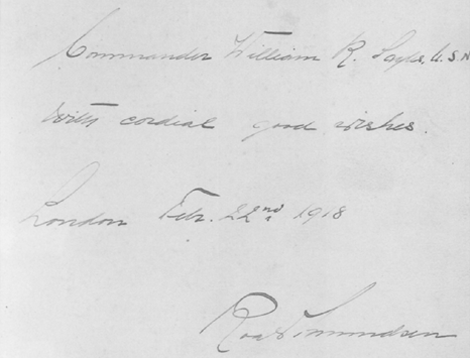 Commander William R. Sayles, U.S.N
With cordial good wishes.
London Feb. 22nd. 1918
Roald Amundsen